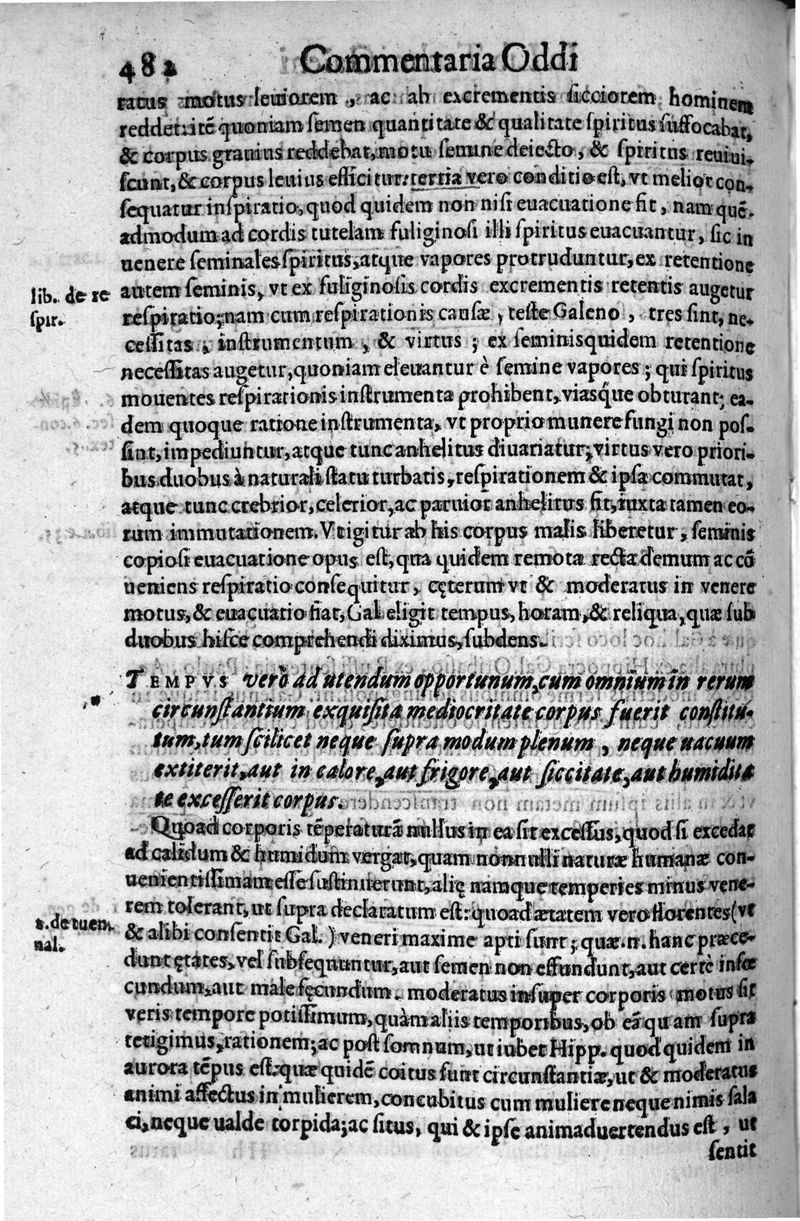 482 Commentaria Oddi
ratus motus leuiorem, ac ab excrementis sicciorem hominem
reddet: itẽ quoniam semen quantitate & qualitate spiritus suffocabat,
& corpus grauius reddebat, motu semine deiecto, & spiritus reuiui-
scunt, & corpus leuius efficitur: tertia vero conditio est, vt melior con-
sequatur inspiratio, quod quidem non nisi euacuatione fit, nam quẽ-
admodum ad cordis tutelam fuliginosi illi spiritus euacuantur, sic in
uenere seminales spiritus, atque vapores protruduntur, ex retentione
lib. de re
spir.
autem seminis, vt ex fuliginosis cordis excrementis retentis augetur
respiratio; nam cum respirationis causæ, teste Galeno, tres sint, ne-
cessitas, instrumentum, & virtus; ex seminis quidem retentione
necessitas augetur, quoniam eleuantur è semine vapores; qui spiritus
mouentes respirationis instrumenta prohibent, viasq́ue obturant; ea-
dem quoque ratione instrumenta, vt proprio munere fungi non pos-
sint, impediuntur, atque tunc anhelitus diuariatur; virtus vero priori-
bus duobus à naturali statu turbatis, respirationem & ipsa commutat,
atque tunc crebrior, celerior, ac paruior anhelitus fit, iuxta tamen eo-
rum immutationem. Vt igitur ab his corpus malis liberetur, seminis
copiosi euacuatione opus est, qua quidem remota recta demum ac cõ
ueniens respiratio consequitur, cęterum vt & moderatus in venere
motus, & euacuatio fiat, Gal eligit tempus, horam, & reliqua, quæ sub
duobus hisce comprehendi diximus, subdens.
TEMPVS verò ad utendum opportunum, cum omnium in rerum
circunstantium exquisita mediocritate corpus fuerit constitu-
tum, tum scilicet neque supra modum plenum, neque uacuum
extiterit, aut in calore, aut frigore, aut siccitate, aut humidita
te excesserit corpus.
Quoad corporis tẽperaturã nullus in ea sit excessus, quod si excedat
ad calidum & humidum vergat, quam nonnulli naturæ humanæ con-
uenientissimam esse sustinuerunt, alię namque temperies minus vene-
rem tolerant, ut supra declaratum est: quoad ætatem vero florentes (vt
de tuen.
nal.
& alibi consentit Gal.) veneri maxime apti sunt; quæ.n. hanc præce-
dunt ętates, vel subsequuntur, aut semen non effundunt, aut certè infœ
cundum, aut male fęcundum. moderatus insuper corporis motus sit
veris tempore potissimum, quàm aliis temporibus, ob eã quam supra
tetigimus, rationem; ac post somnum, ut iubet Hipp. quod quidem in
aurora tẽpus est: quæ quidẽ coitus sunt circunstantiæ, ut & moderatus
animi affectus in mulierem, concubitus cum muliere neque nimis sala
ci, neque ualde torpida; ac situs, qui & ipse animaduertendus est, ut
sentit